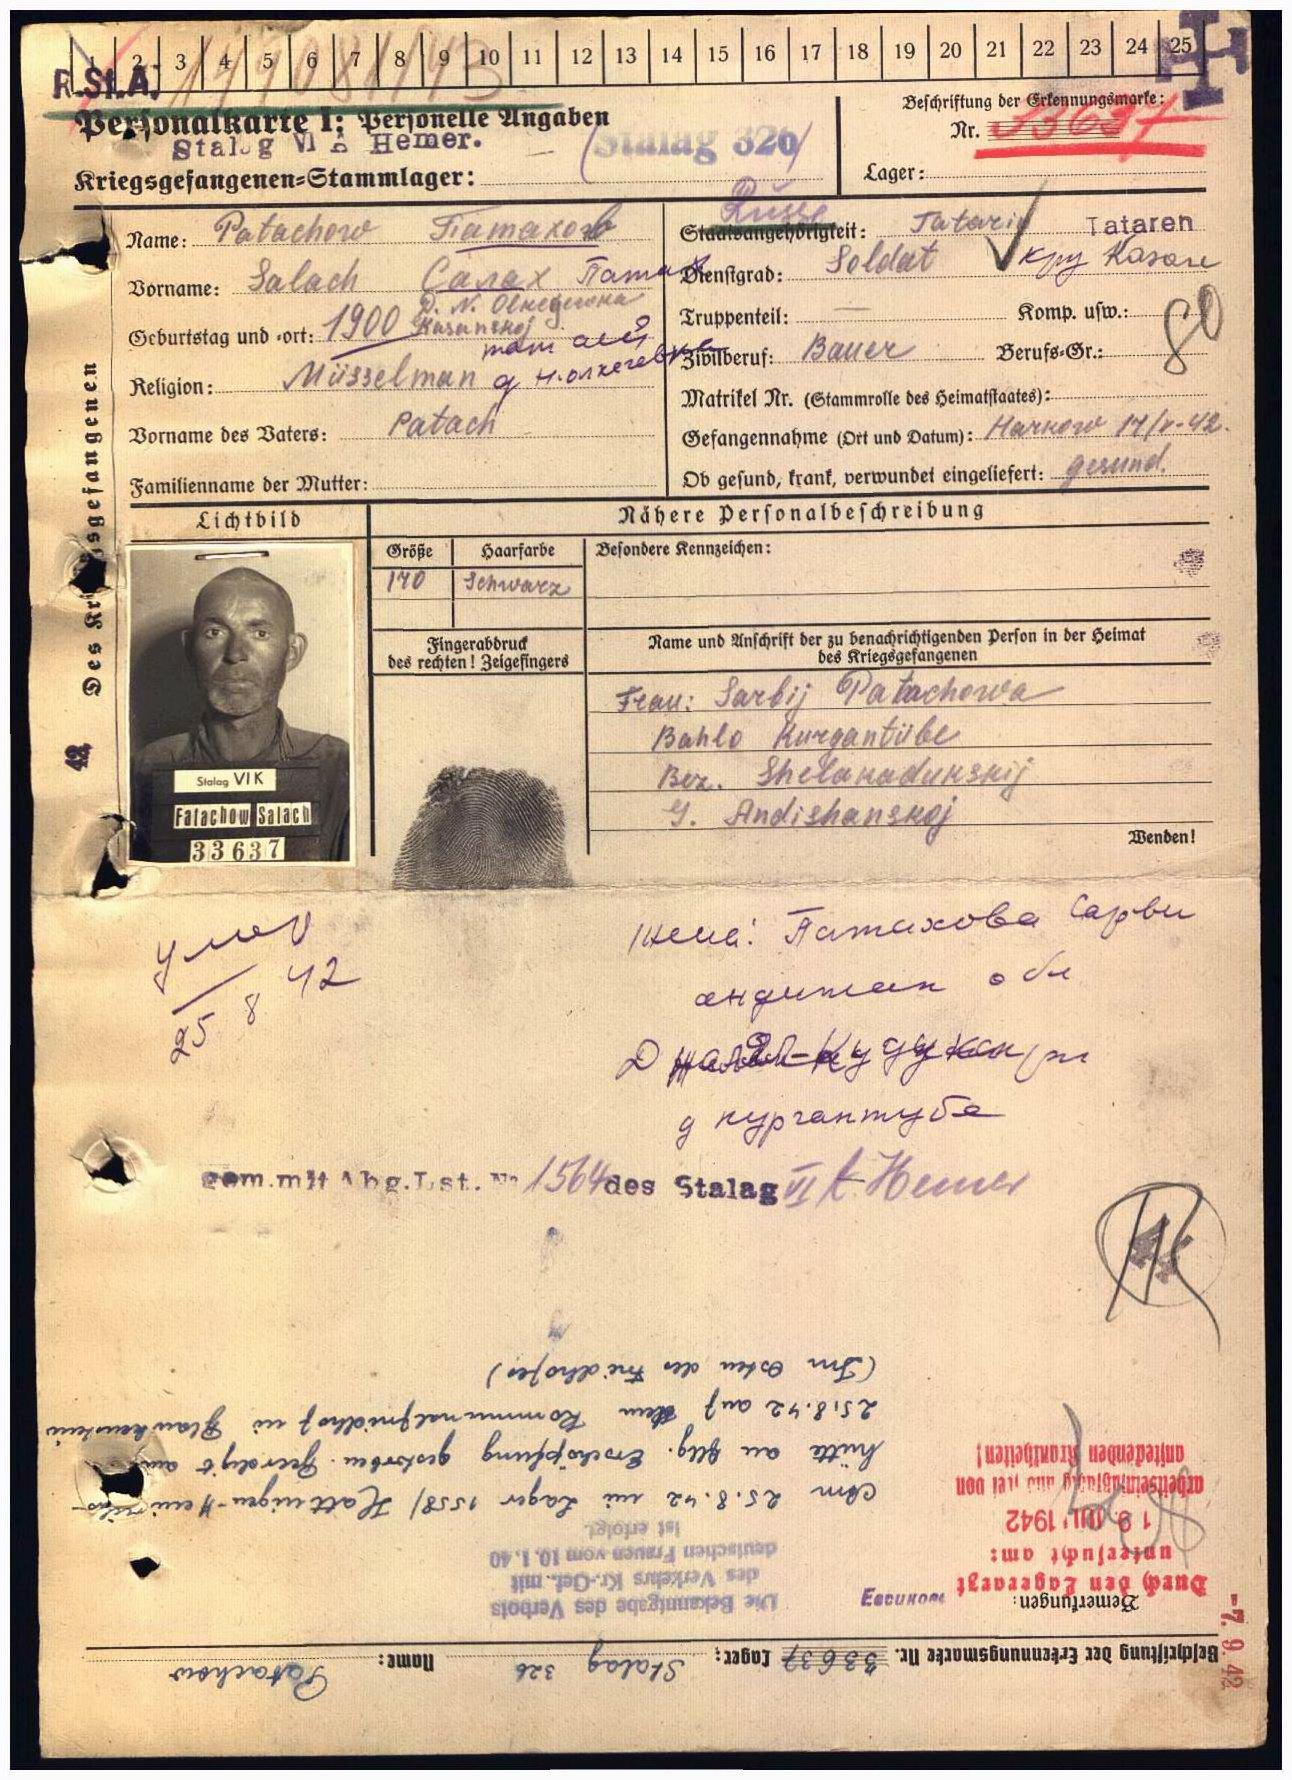 1 2 3 4 5 6 7 8 9 10 11 12 13 14 15 16 17 18 19 20 21 22 23 24 25
R.St.A.
Personalkarte I: Personelle Angaben
Stalag VI Hemer.
(Stalag 326)
Kriegsgefangenen=Stammlager:
Beschriftung der Erkennungsmarke:
Nr. 33637
Lager:
Des Kriegsgefangenen
42
Name: Patachow Патахов
Vorname: Salach Салах Патах
Geburtstag und =ort: 1900 D. N. Olkegewka
Kasanskoj
тат асср
Religion: Müsselman д Н.олкегевка
Vorname des Vaters: Patach
Familienname der Mutter:
Russe
Staatsangehörigkeit: Tataren
Dienstgrad: Soldat Казан
Truppenteil: — Komp. usw.:
80
Zivilberuf: Bauer Berufs-Gr.:
Matrikel Nr. (Stammrolle des Heimatstaates):
Gefangennahme (Ort und Datum): Harkow 17/V-42.
Ob gesund, krank, verwundet eingeliefert: gesund.
Lichtbild
Nähere Personalbeschreibung
Größe Haarfarbe Besondere Kennzeichen:
170 Schwarz
Fingerabdruck
des rechten! Zeigefingers
Name und Anschrift der zu benachrichtigenden Person in der Heimat
des Kriegsgefangenen
Frau: Sarbij Patachowa
Bahlo Kurgantübe
Bez. Shelakadukskij
G. Andishanskoj
Wenden!
Stalag VI K
Fatachow Salach
33637
умер
25 8 42
Жена: Патахова Сарви
андижан обл
Джалал-Кудукск
д кургантубе
gem. mit Abg. Lst. № 1564 des Stalag VI A Hemer
(Im Osten des Friedhofes)
25.8.42 auf dem Kommunalfriedhof in Blankenstein
hütte an allg. Erschöpfung gestorben. Beerdigt am
Am 25.8.42 im Lager 1558/ Hattingen-Heinrichs-
Die Bekanntgabe des Verbots
des Verkehrs Kr.-Gef. mit
deutschen Frauen vom 10.1.40
ist erfolgt.
Bemerkungen:
Durch den Lagerarzt
untersucht am:
19 JULI 1942
arbeitseinsatzfähig und frei von
ansteckenden Krankheiten!
-7. 9. 42
Beschriftung der Erkennungsmarke Nr. 33637 Lager: Stalag 326 Name: Patachow